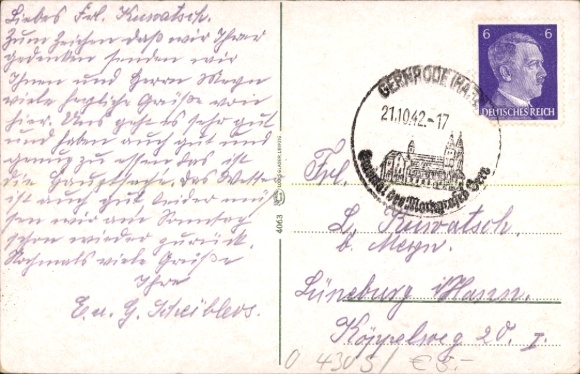 Liebes Frl. Kuwatsch.
Zum Zeichen daß wir Ihrer
gedenken senden wir
Ihnen und Herrn Meyn
viele herzliche Grüße von
hier. Uns geht es sehr gut
und haben auch gut und
genug zu essen das ist
die Hauptsache, das Wetter
ist auch gut leider müs-
sen wir am Sonntag
schon wieder zurück.
Nochmals viele Grüße
Ihre
E. u. G. Scheiblers.
4063
GERNRODE (HARZ)
21.10.42.-17
des Markgrafen Gero
6 6
DEUTSCHES REICH
Frl.
L. Kuwatsch.
b. Meyn.
Lüneburg Hann.
Köppelweg 20. I.
0 4305/ € 5.-